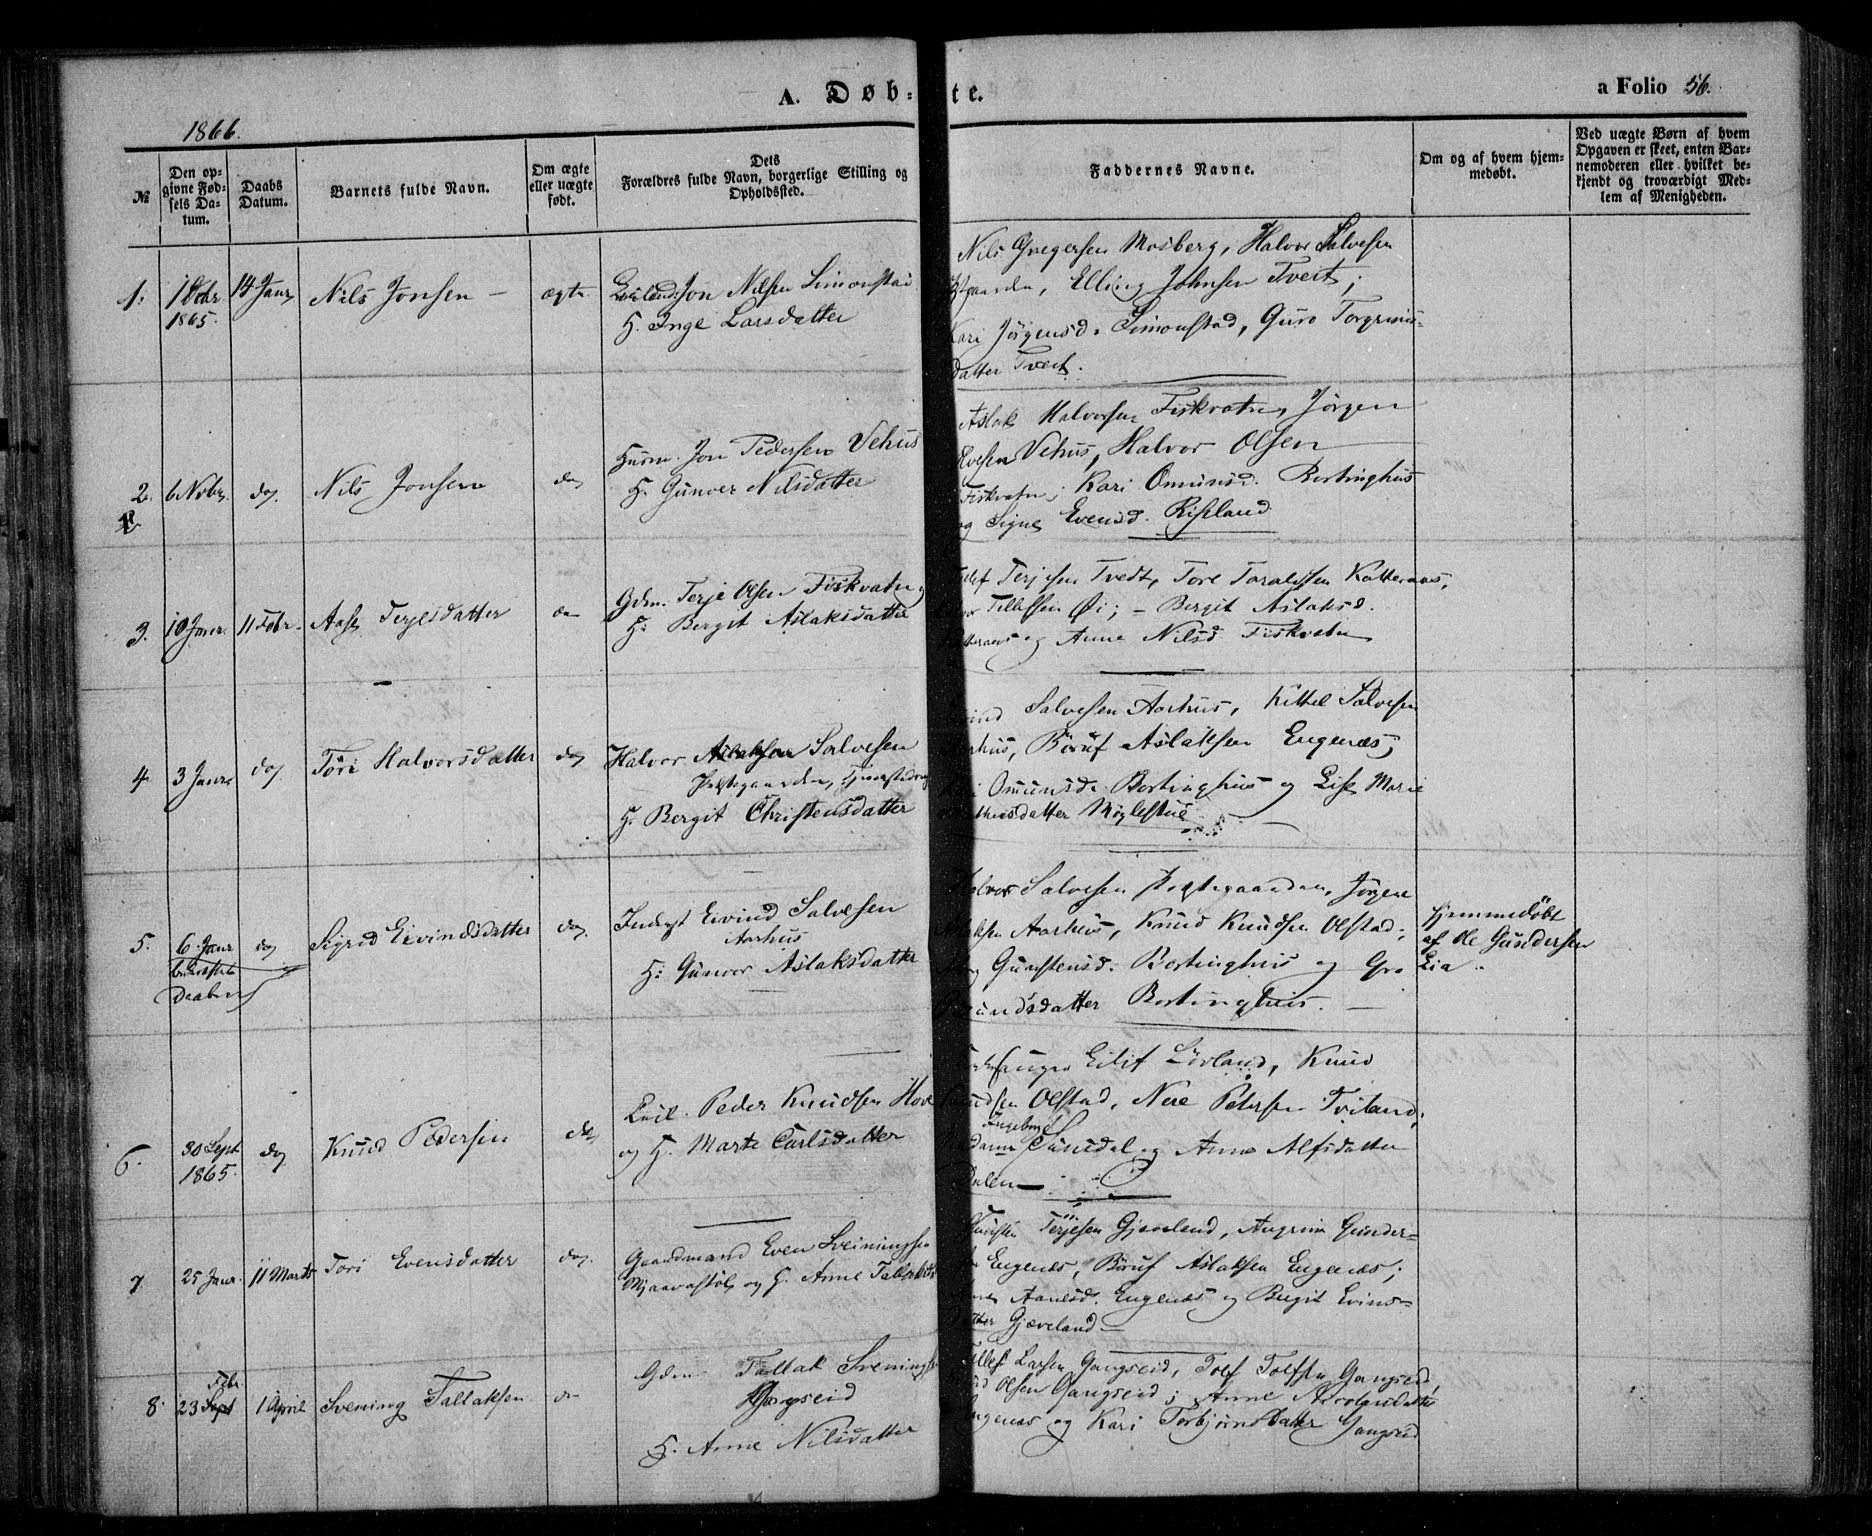 A. Døb-te.
a Folio 56.
1866.
№
Den opgivne Fødsels Datum.
Daabs Datum.
Barnets fulde Navn.
Om ægte eller uægte født.
Dets
Forældres fulde Navn, borgerlige Stilling og
Opholdssted.
Faddernes Navne.
Om og af hvem hjemmedøbt.
Ved uægte Børn af hvem
Opgaven er skeet, enten Barnemoderen eller hvilket bekjendt og troværdigt Medlem af Menigheden.
1.
1865.
14 Janr
Nils Jonsen —
ægte
Jon Nilsen Simonstad
H. Inge Larsdatter
Nils Gregersen Mosberg, Halvor Salvesen
Elling Johnsen Tvert;
Kari Jørgensd. Simonstad, Guro Torgrims-
datter Tvert.
2.
6 Novbr.
do
Nils Jonsen
do
Huusm. Jon Pedersen Vehus
H. Gunvor Nilsdatter
Aslak Halvorsen Fiskvatn, Jörgen
Evesen Vehus, Halvor Olsen
Fiskvatn; Kari Omunsd. Bortinghus
og Signe Evensd. Riseland.
3.
10 Janr.
11 Febr.
Aase Terjesdatter
do
Gdm. Terje Olsen Fiskvatn
H. Bergit Aslaksdatter
Terjesen Tvedt, Tore Taraldsen Katteraas,
Tellefsen Øi; — Bergit Aslaksd.
og Anne Nilsd Fiskvatn
4.
3 Janr
do
Töri Halvorsdatter
do
Halvor Salvesen
Præstegaarden,
H. Bergit Christensdatter
Salvesen Aarhus, Kittel Salvesen
Aarhus, Böruf Aslaksen Engenæs;
Omunsd. Bortinghus og Lise Marie
datter Møglestue
5.
6 Janr
Daaben
do
Sigrid Eivindsdatter
do
Inderst Eivind Salvesen
Aarhus
H. Gunvor Aslaksdatter
Halvor Salvesen Præstegaarden, Jörgen
Aarhus, Knud Knudsen Olstad;
Gunstensd. Bortinghus og Gro
Omundsdatter Bortinghus. —
Hjemmedöbt
af Ole Gundersen
Lia.
6.
30 Sept
1865.
do
Knud Pedersen
do
Peder Knudsen Hove
og H. Marte Carlsdatter
Eilif Lörland, Knud
Knudsen Olstad, Nere Petersen Tviland,
Ingeborg
Madame Sunsdal og Anne Alfsdatter
Dalen —
7.
25 Janr.
11 Marts
Tori Evensdatter
do.
Gaardmand Even Sveiningsen
Mjaavastöl og H. Anne Tallaksd
Gunsten Terjesen Gjæveland, Augrim Gunder-
Engenæs, Böruf Aslaksen Engenæs;
Aanesd. Engenæs og Bergit Evinds-
datter Gjæveland —
8.
Febr.
23 Sept
1 April
Svening Tallaksen
do
Gdm Tallak Svenings
Gangseid
H. Anne Nilsdatter
Tellef Larsen Gangseid, Tolf Tolfsen Gangseid,
Olsen Gangseid; Anne Nicolaisdatter
Engenæs og Kari Torbjörnsdatter Gangseid